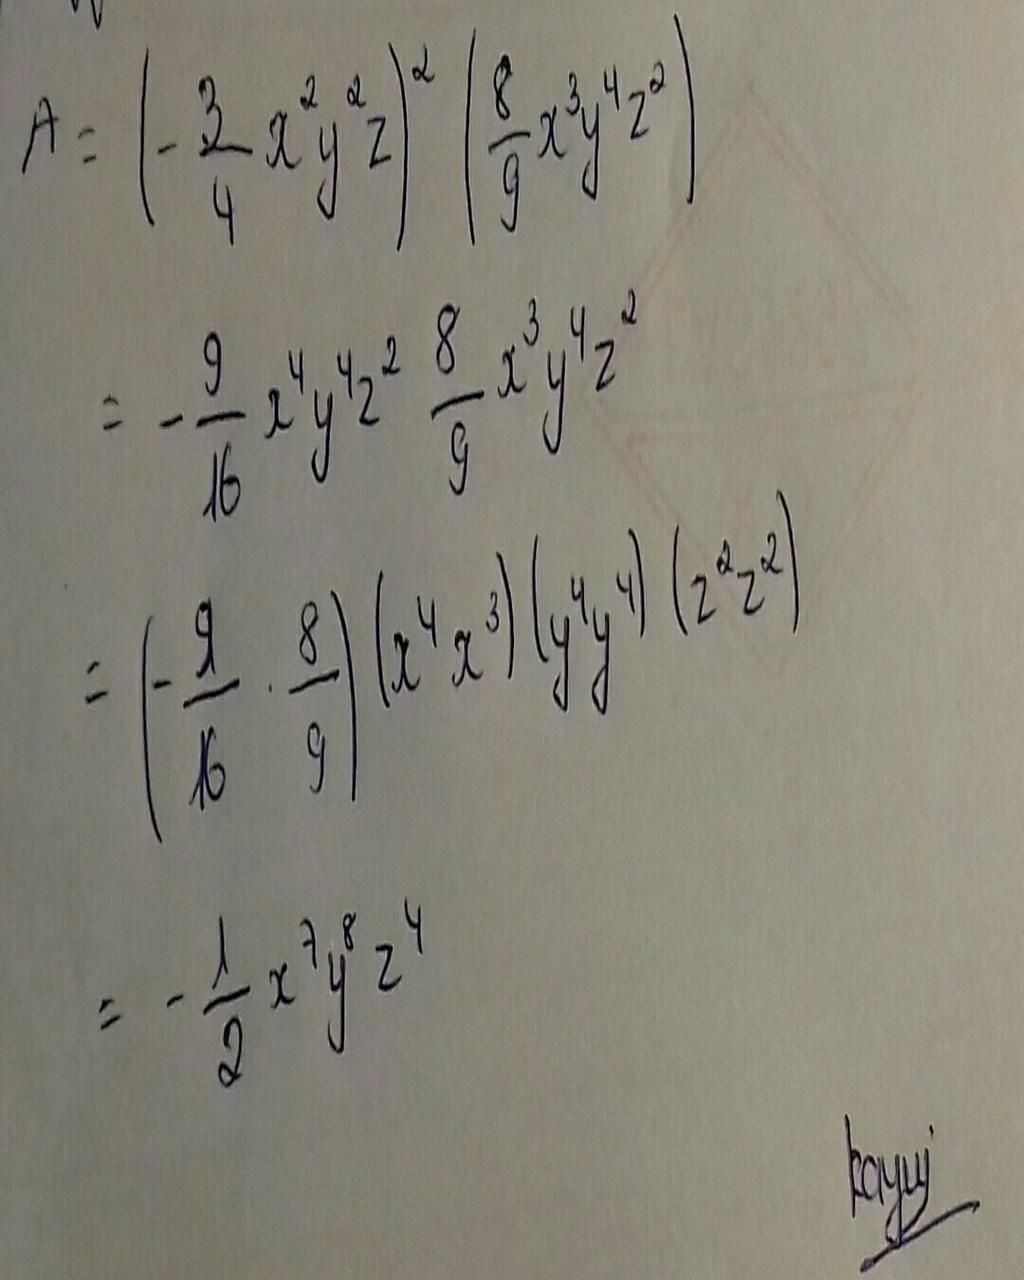 A = (-3/4 x²y²z)² (8/9 x³y⁴z²)
= -9/16 x⁴y⁴z² 8/9 x³y⁴z²
= (-9/16 . 8/9) (x⁴x³) (y⁴y⁴) (z²z²)
= -1/2 x⁷y⁸z⁴